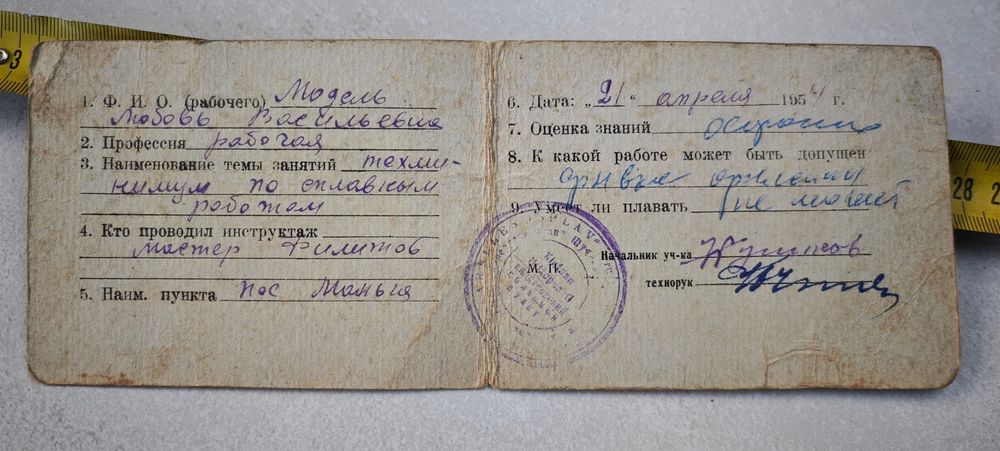 1. Ф. И. О. (рабочего) Модель
Любовь Васильевна
2. Профессия рабочая
3. Наименование темы занятий техми-
нимум по сплавным
работам
4. Кто проводил инструктаж
мастер Филитов
5. Наим. пункта пос
6. Дата: „21“ апреля 1954 г.
7. Оценка знаний
8. К какой работе может быть допущен
9. Умеет ли плавать не может
М. П.
Начальник уч-ка
технорук
3
28